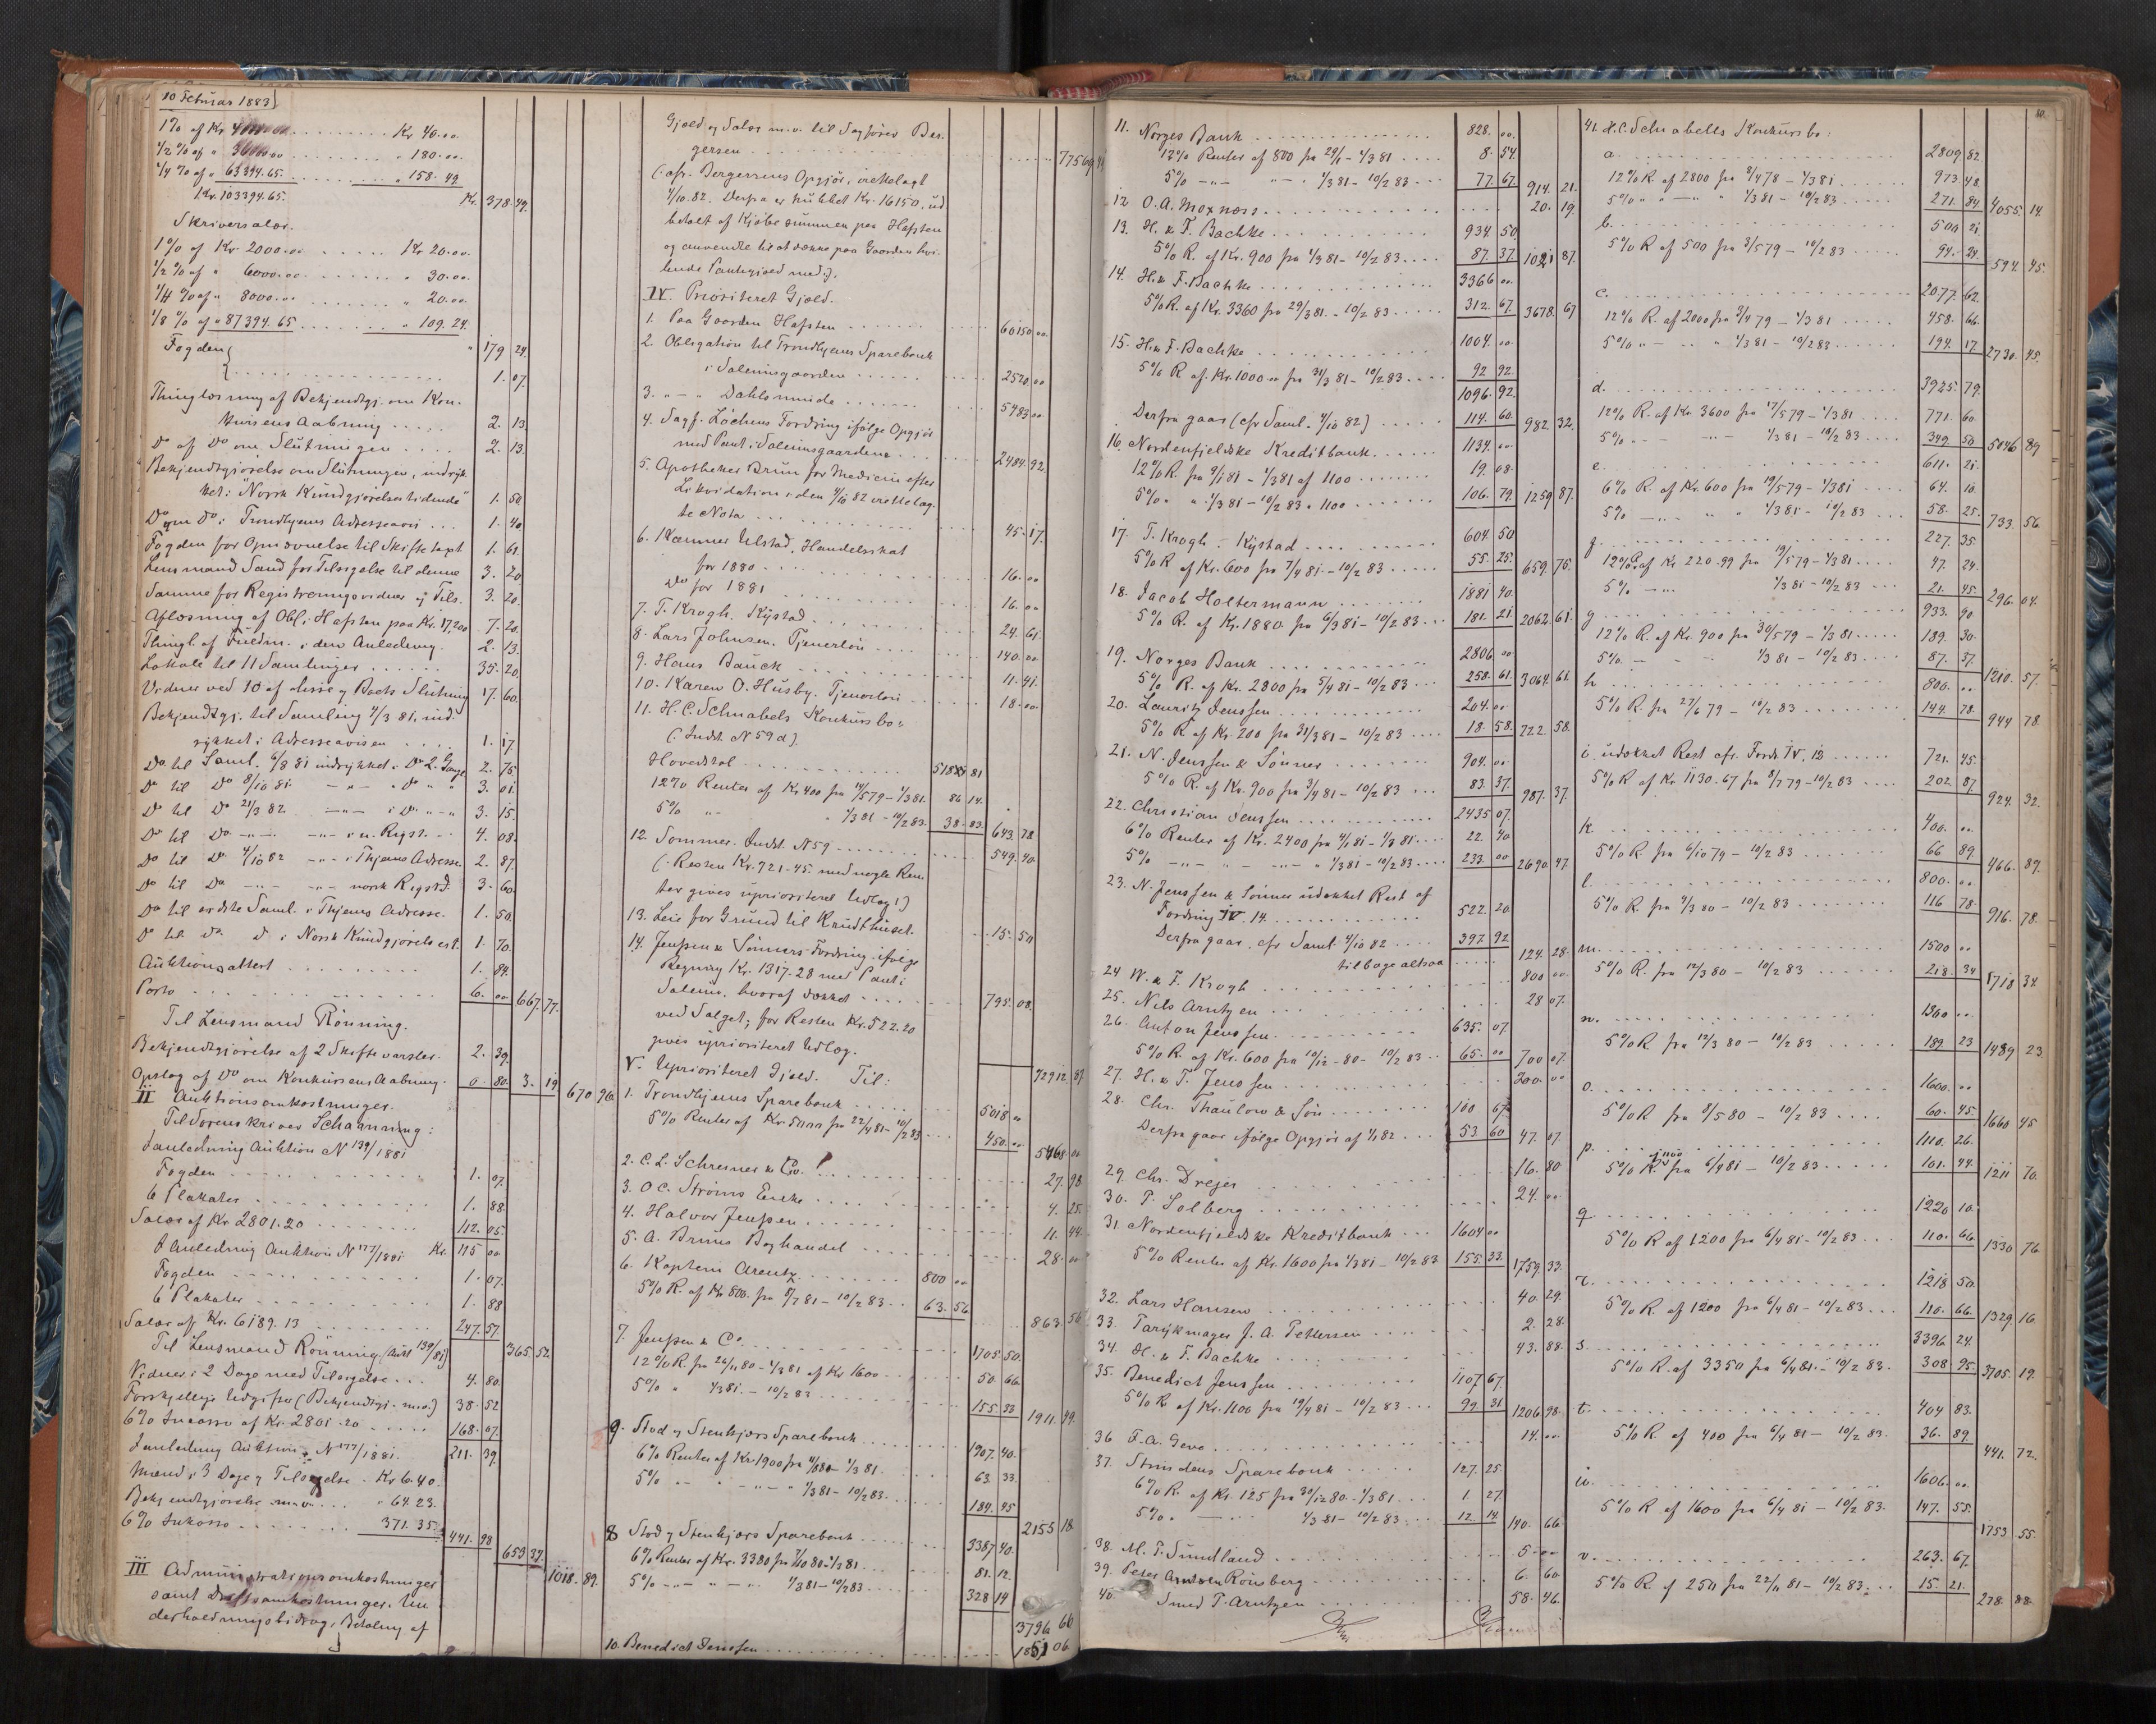 10 Februar 1883
1% af Kr. 4000.00 ........ Kr. 40.00
1/2 % af " 36000.00 ........ " 180.00
1/4 % af " 63394.65 ........ " 158.49
Kr. 103394.65. Kr. 378.49.
Skriversalær.
1% af Kr. 2000.00 ...... Kr 20.00.
1/2 % af " 6000.00 ...... " 30.00.
1/4 % af " 8000.00 ...... " 20.00
1/8 % af " 87394.65 ...... " 109.24.
" 179 24.
Fogden
........ 1. 07.
Thinglæsning af Bekjendtgj. om Kon-
kursens Aabning .... 2. 13.
Do af Do om Slutningen .... 2. 13.
Bekjendtgjørelse om Slutningen, indryk-
ket i "Norsk Kundgjørelsestidende" 1. 50
Do om Do i Trondhjems Adresseavis ... 1. 40.
Fogden for Opnævnelse til Skiftetaxt 1. 61.
Lensmand Sand for Tilsigelse til denne 3. 20
Samme for Registreringsvidner og Tils. 3. 20.
Aflæsning af Obl. i Hafsten paa Kr. 17,200 7. 20.
Thingl. af Fuldm. i den Anledning. 2. 13.
Lokale til 11 Samlinger ...... 35. 20.
Vidner ved 10 af disse og Boets Slutning 17. 60.
Bekjendtgj. til Samling 4/3 81, ind-
rykket i Adresseavisen .... 1. 17
Do til Saml. 6/8 81 indrykket i Do 2. Gange 2. 75.
Do til Do 8/10 81 -"- " Do " " 3. 01.
Do til Do 21/3 82 -"- i Do "-" 3. 15.
Do til Do -"- -"- i n. Rigst. .. 4. 08.
Do til Do 4/10 82 -"- i Thjems Adresse. 2. 87.
Do til Do -"- -"- norsk Rigstd. 3. 60.
Do til sidste Saml. i Thjems Adresse. 1. 50.
Do til Do Do i Norsk Kundgjørelsest. 1. 70.
Auktionsattest ........ 1. 84.
Porto ........ 6. 00 667. 77.
Til Lensmand Rönning.
Bekjendtgjørelse af 2 Skiftevarsler. 2. 39.
Opslag af Do om Konkursens Aabning. 0. 80. 3. 19 670 96.
II Auktionsomkostninger.
Til Sorenskriver Schanning:
I anledning Auktion N 139/1881
Fogden ........ 1. 07.
6 Plakater ........ 1. 88.
Salær af Kr. 2801.20 ........ 112. 05.
I Anledning Auktion N 177/1881 Kr. 115 00
Fogden ........ 1. 07.
6 Plakater ........ 1. 88
Salær af Kr. 6189. 13 ........ 247. 57.
365. 52
Til Lensmand Rönning (Aukt 139/81)
Vidner i 2 Dage med Tilsigelse ... 4. 80.
Forskjellige Udgifter (Bekjendtgj. m.v.) 38. 52
6% Inkasso af Kr. 2801.20 ..... 168. 07.
I anledning Auktion N 177/1881. 211. 39.
Mænd i 3 Dage og Tilsigelse . Kr 6.40.
Bekjendtgjørelse m.v. ... " 64.23.
6% Inkasso ........ 371. 35.
441. 98
653 37. 1018. 89.
III Administrationsomkostninger
samt Driftsomkostninger. Un-
derholdningsbidrag, Betaling af
Gjæld og Salær m.v. til Sagfører Ber-
gersen ........ 77569
(cfr. Bergersens Opgjør, irettelagt
4/10.82. Derfra er trukket Kr. 16150, ud-
betalt af Kjøbesummen paa Hafsten
og anvendte til at dække paa Gaarden hvi-
lende Pantegjæld med).
IV. Prioriteret Gjæld.
1. Paa Gaarden Hafsten ........ 60150 00.
2. Obligation til Trondhjems Sparebank
i Saleniusgaarden ........ 2520. 00
3. "-" Dahlsminde ........ 5483 00.
4. Sagf. Löchens Fordring ifølge Opgjør
med Pant i Saleniusgaarden ... 2484. 92.
5. Apotheker Brun for Medicin efter
Likvidation i den 4/10 82 irettelag-
te Nota ........ 45. 17.
6. Kæmner Ulstad, Handelsskat
for 1880 ........ 16. 00
Do for 1881 ........ 16. 00
7. T. Krogh. Kystad ........ 24. 61.
8. Lars Johnsen. Tjenerløn ........ 140. 00
9. Hans Bauck ........ 11. 41.
10. Karen O. Husby. Tjenerløn ........ 18. 00.
11. H. C. Schnabels Konkursbo.
(Indst. N 59 d).
Hovedstol ........ 518 81
12% Renter af Kr 400 fra 14/5 79 - 4/3 81. 86 14.
5% "- " 4/3 81 - 10/2 83. 38. 83. 643. 78
12. Sommer. Indst. N 59 ........ 549. 40.
(Resten Kr. 721.45. med nogle Ren-
ter gives uprioriteret Udlæg!)
13. Leie for Grund til Krudthuset. .... 15. 50
14. Jenssen & Sönners Fordring ifølge
Regning Kr. 1317.28 med Pant i
Salenius, hvoraf dækket .... 795. 08.
ved Salget; for Resten Kr. 522.20
gives uprioriteret Udlæg.
72912 87.
V. Uprioriteret Gjæld. Til:
1. Trondhjems Sparebank ...... 5018 00
5% Renter af Kr. 5000 fra 22/4 81 - 10/2 83 ... 450. 00 5468 00
2. C. L. Schreiner & Co. ........ 27. 98
3. O C. Ströms Enke ........ 4. 25.
4. Halvor Jenssen ........ 11. 44.
5. A. Bruns Boghandel ........ 28. 00
6. Kaptein Arentz ........ 800 00
5% R. af Kr 800. fra 9/7 81 - 10/2 83 .. 63. 56 863. 56
7. Jenssen & Co. ........ 1705. 50.
12% R. fra 26/11 80 - 4/3 81 af Kr 1600 ... 50. 66.
5% " 4/3 81. - 10/2 83 ... 155. 33 1911. 49.
9. Stod og Stenkjærs Sparebank ........ 1907. 40.
6% Renter af Kr. 1900 fra 11/8 80 - 4/3 81. 63. 33.
5% "- " -"-" 4/3 81 - 10/2 83. .... 184. 45 2155 18.
8 Stod og Stenkjærs Sparebank ........ 3387 40.
6% Renter af Kr. 3380 fra 7/10 80 - 4/3 81. ... 81. 12.
5% -"- "-"- 4/3 81 - 10/2 83. ...... 328 14 3796 66
10. Benedict Jenssen ........ 1851 06.
11. Norges Bank ........ 828. 00.
12% Renter af 800 fra 29/1 - 4/3 81 .... 8. 54.
5% -"- "-" 4/3 81 - 10/2 83 ... 77. 67. 914. 21.
12. O. A. Moxness ........ 20. 19.
13. H. & F. Bachke ........ 934 50
5% R. af Kr. 900 fra 4/3 81 - 10/2 83 .... 87. 37. 1021 87.
14. H. & F. Bachke ........ 3366 00
5% R. af Kr. 3360 fra 29/3 81. - 10/2 83 ..... 312. 67. 3678. 67
15. H. & F. Bachke ........ 1004. 00.
5% R af. Kr. 1000.00 fra 31/3 81 - 10/2 83 .... 92 92.
1096. 92.
Derfra gaar (cfr Saml. 4/10 82) ..... 114. 60. 982. 32.
16. Nordenfjeldske Kreditbank ...... 1134. 00
12% R. fra 9/1 81 - 4/3 81 af 1100 ...... 19. 08.
5% " " 4/3 81 - 10/2 83 " 1100 ... 106. 79 1259 87.
17. T. Krogh. - Kystad .... 604. 50
5% R af Kr. 600 fra 7/4 81. - 10/2 83 ..... 55. 25. 659. 75.
18. Jacob Holtermann ........ 1881 40.
5% R. af Kr. 1880. fra 6/3 81 - 10/2 83 ... 181. 21. 2062. 61.
19. Norges Bank ........ 2806. 00
5% R. af Kr. 2800 fra 5/4 81 - 10/2 83 .... 258. 61. 3064. 61.
20. Lauritz Jenssen ........ 204. 00
5% R. af Kr. 200 fra 31/3 81 - 10/2 83 .... 18. 58. 222. 58.
21. N. Jenssen & Sönner ........ 904. 00
5% R. af Kr. 900 fra 3/4 81 - 10/2 83 ... 83. 37. 987. 37.
22. Christian Jenssen ........ 2435 07.
6% Renter af Kr. 2400 fra 4/1 81 - 4/3 81 .... 22. 40
5% -"-"- " -"- " 4/3 81 - 10/2 83 .... 233. 00 2690. 47.
23. N. Jenssen & Sönner udækket Rest af
Fordring IV. 14 ........ 522. 20.
Derfra gaar, cfr Saml. 4/10 82 .... 397. 92
tilbage altsaa ..... 124. 28.
24 W. & F. Krogh ........ 800 00.
25. Nils Arntzen ........ 28 07.
26. Anton Jenssen ........ 635. 07
5% R. af Kr. 600 fra 10/12 - 80 - 10/2 83 .. 65. 00 700 07.
27. H. & T. Jenssen ........ 200. 00
28. Chr. Thaulow & Sön ........ 100 67
Derfra gaar ifølge Opgjør af 4/1 82 ... 53. 60 47. 07.
29. Chr. Drejer ........ 16. 80
30. P. Solberg ........ 24. 00
31. Nordenfjeldske Kreditbank ... 1604 00
5% Renter af Kr. 1600 fra 4/3 81 - 10/2 83 155. 33. 1759. 33.
32. Lars Hansen ........ 40. 29.
33. Parykmager J. A. Pettersen ........ 2. 28.
34. H. & F. Bachke ........ 43. 88.
35. Benedict Jenssen ........ 1107 67.
5% R. af Kr. 1100 fra 19/4 81 - 10/2 83 ... 99. 31 1206. 98.
36 F. A. Geve ........ 14. 00
37. Strindens Sparebank ..... 127. 25.
6% R. af Kr. 125 fra 30/12 80 - 4/3 81 ... 1. 27.
5% " -"- 4/3 81 - 10/2 83 ... 12. 14. 140. 66.
38. M. P. Sundland ........ 5. 00
39. Peter Rönsberg ........ 6. 60.
40. Smed P. Arntzen ........ 58. 46.
41. H. C. Schnabells Konkursbo:
a. ........ 2809 82
12% R. af 2800 fra 8/4 78 - 4/3 81 ...... 973. 48.
5% " " -"- " 4/3 81 - 10/2 83 ...... 271. 84 4055. 14.
b. ........ 500 21.
5% R. af 500 fra 3/5 79 - 10/2 83 ...... 94. 24. 594. 45.
c. ........ 2077. 62.
12% R. af 2000 fra 8/4 79 - 4/3 81 ..... 458. 66.
5% "- " - " 4/3 81 - 10/2 83 ...... 194. 17 2730. 45.
d. ........ 3925. 79.
12% R. af Kr. 3600 fra 17/5 79 - 4/3 81 .... 771. 60.
5% - - -"- 4/3 81 - 10/2 83 .... 349. 50 5046 89
e. ........ 611. 21.
6% R. af Kr. 600 fra 19/5 79 - 4/3 81 .... 64. 10.
5% -"- " " 4/3 81 - 10/2 83 ... 58. 25. 733. 56.
f. ........ 227. 35.
12% R. af Kr 220.99 fra 19/5 79 - 4/3 81 .... 47. 24.
5% -"- 4/3 81 - 10/2 83 ... 21. 45. 296. 04.
g ........ 933. 90
12% R. af Kr. 900 fra 30/5 79 - 4/3 81 ..... 189. 30.
5% - - 4/3 81 - 10/2 83 ..... 87. 37. 1210. 57.
h ........ 800. 00
5% R. fra 27/6 79 - 10/2 83 ........ 144. 78. 944 78.
i. udækket Rest cfr. Fordr. IV. 12 ...... 721. 45.
5% R af Kr 1130.67 fra 8/7 79 - 10/2 83 .... 202. 87 924. 32.
k. ........ 400. 00.
5% R. fra 6/10 79 - 10/2 83 ....... 66 89. 466. 89.
l. ........ 800. 00
5% R. fra 9/3 80 - 10/2 83 ........ 116 78. 916. 78.
m. ........ 1500 00
5% R. fra 12/3 80 - 10/2 83 ...... 218. 34 1718 34.
n. ........ 1300 00.
5% R. fra 12/3 80 - 10/2 83 ..... 189. 23 1489 23
o. ........ 1600. 00
5% R fra 8/5 80 - 10/2 83 .... 60. 45 1660 45
p. ........ 1110. 26.
1100
5% R. fra 6/4 81 - 10/2 83 ..... 101. 44. 1211 70.
q ........ 1220 10.
5% R af 1200 fra 6/4 81 - 10/2 83 ... 110. 66 1330 76.
r. ........ 1218 50.
5% R. af 1200 fra 6/4 81 - 10/2 83 ... 110. 66. 1329. 16.
s. ........ 3396. 24.
5% R. af 3350 fra 6/4 81. - 10/2 83. 308. 95. 3705. 19.
t. ........ 404 83.
5% R. af 400 fra 6/4 81 - 10/2 83. 36. 89. 441. 72.
u. ........ 1606. 00.
5% R af 1600 fra 6/4 81 - 10/2 83. 147. 55. 1753 55.
v. ........ 263. 67.
5% R. af 250 fra 22/11 81 - 10/2 83. .. 15. 21. 278. 88.